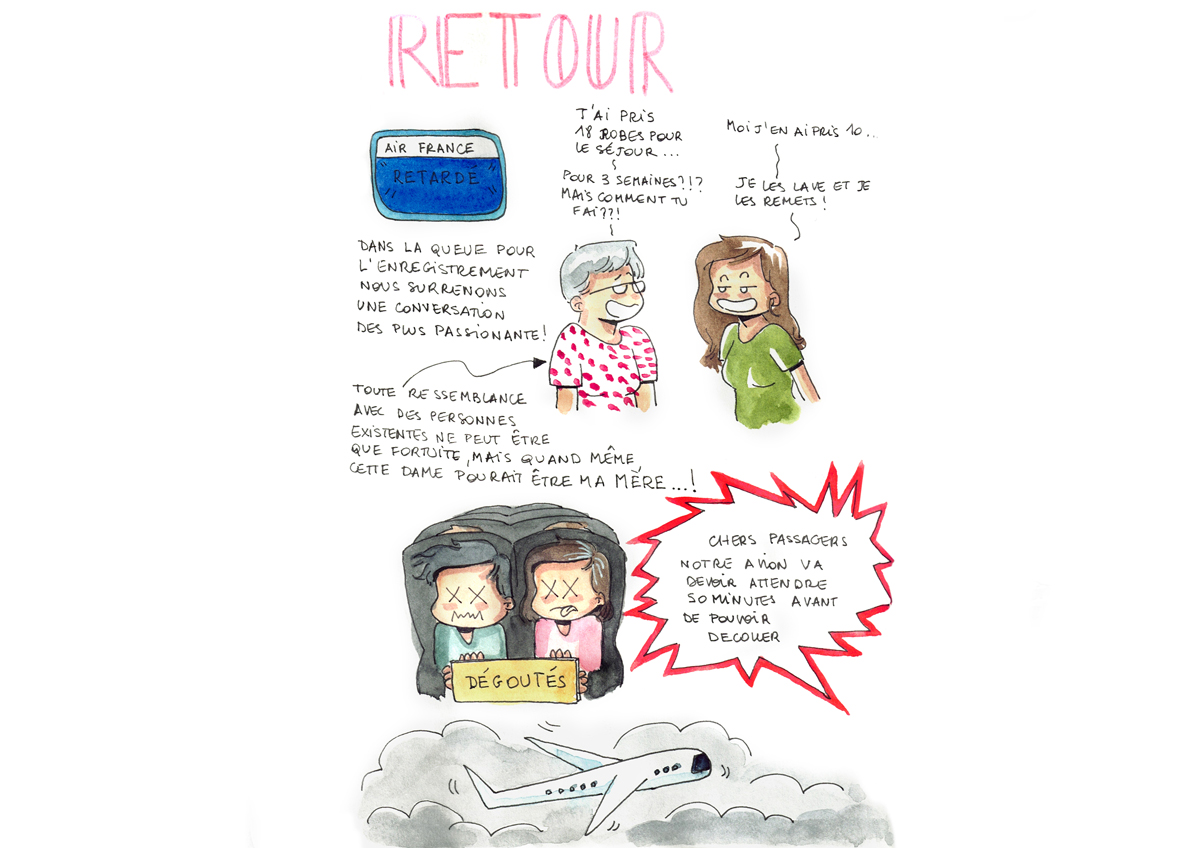 RETOUR
AIR FRANCE
RETARDÉ
J'AI PRIS
18 ROBES POUR
LE SÉJOUR...
POUR 3 SEMAINES?!?
MAIS COMMENT TU
FAI??!
MOI J'EN AI PRIS 10..
JE LES LAVE ET JE
LES REMETS!
DANS LA QUEUE POUR
L'ENREGISTREMENT
NOUS SURRENONS
UNE CONVERSATION
DES PLUS PASSIONANTE!
TOUTE RESSEMBLANCE
AVEC DES PERSONNES
EXISTENTES NE PEUT ÊTRE
QUE FORTUITE, MAIS QUAND MÊME
CETTE DAME POURAIT ÊTRE MA MÈRE...!
CHERS PASSAGERS
NOTRE AVION VA
DEVOIR ATTENDRE
50 MINUTES AVANT
DE POUVOIR
DECOLLER
DÉGOUTÉS